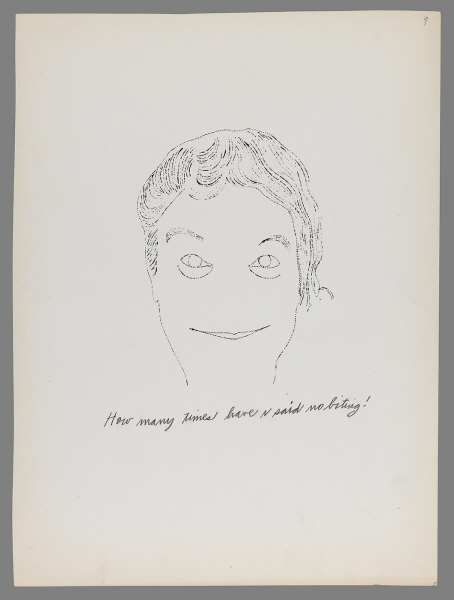 9
How many times have i said no biting!